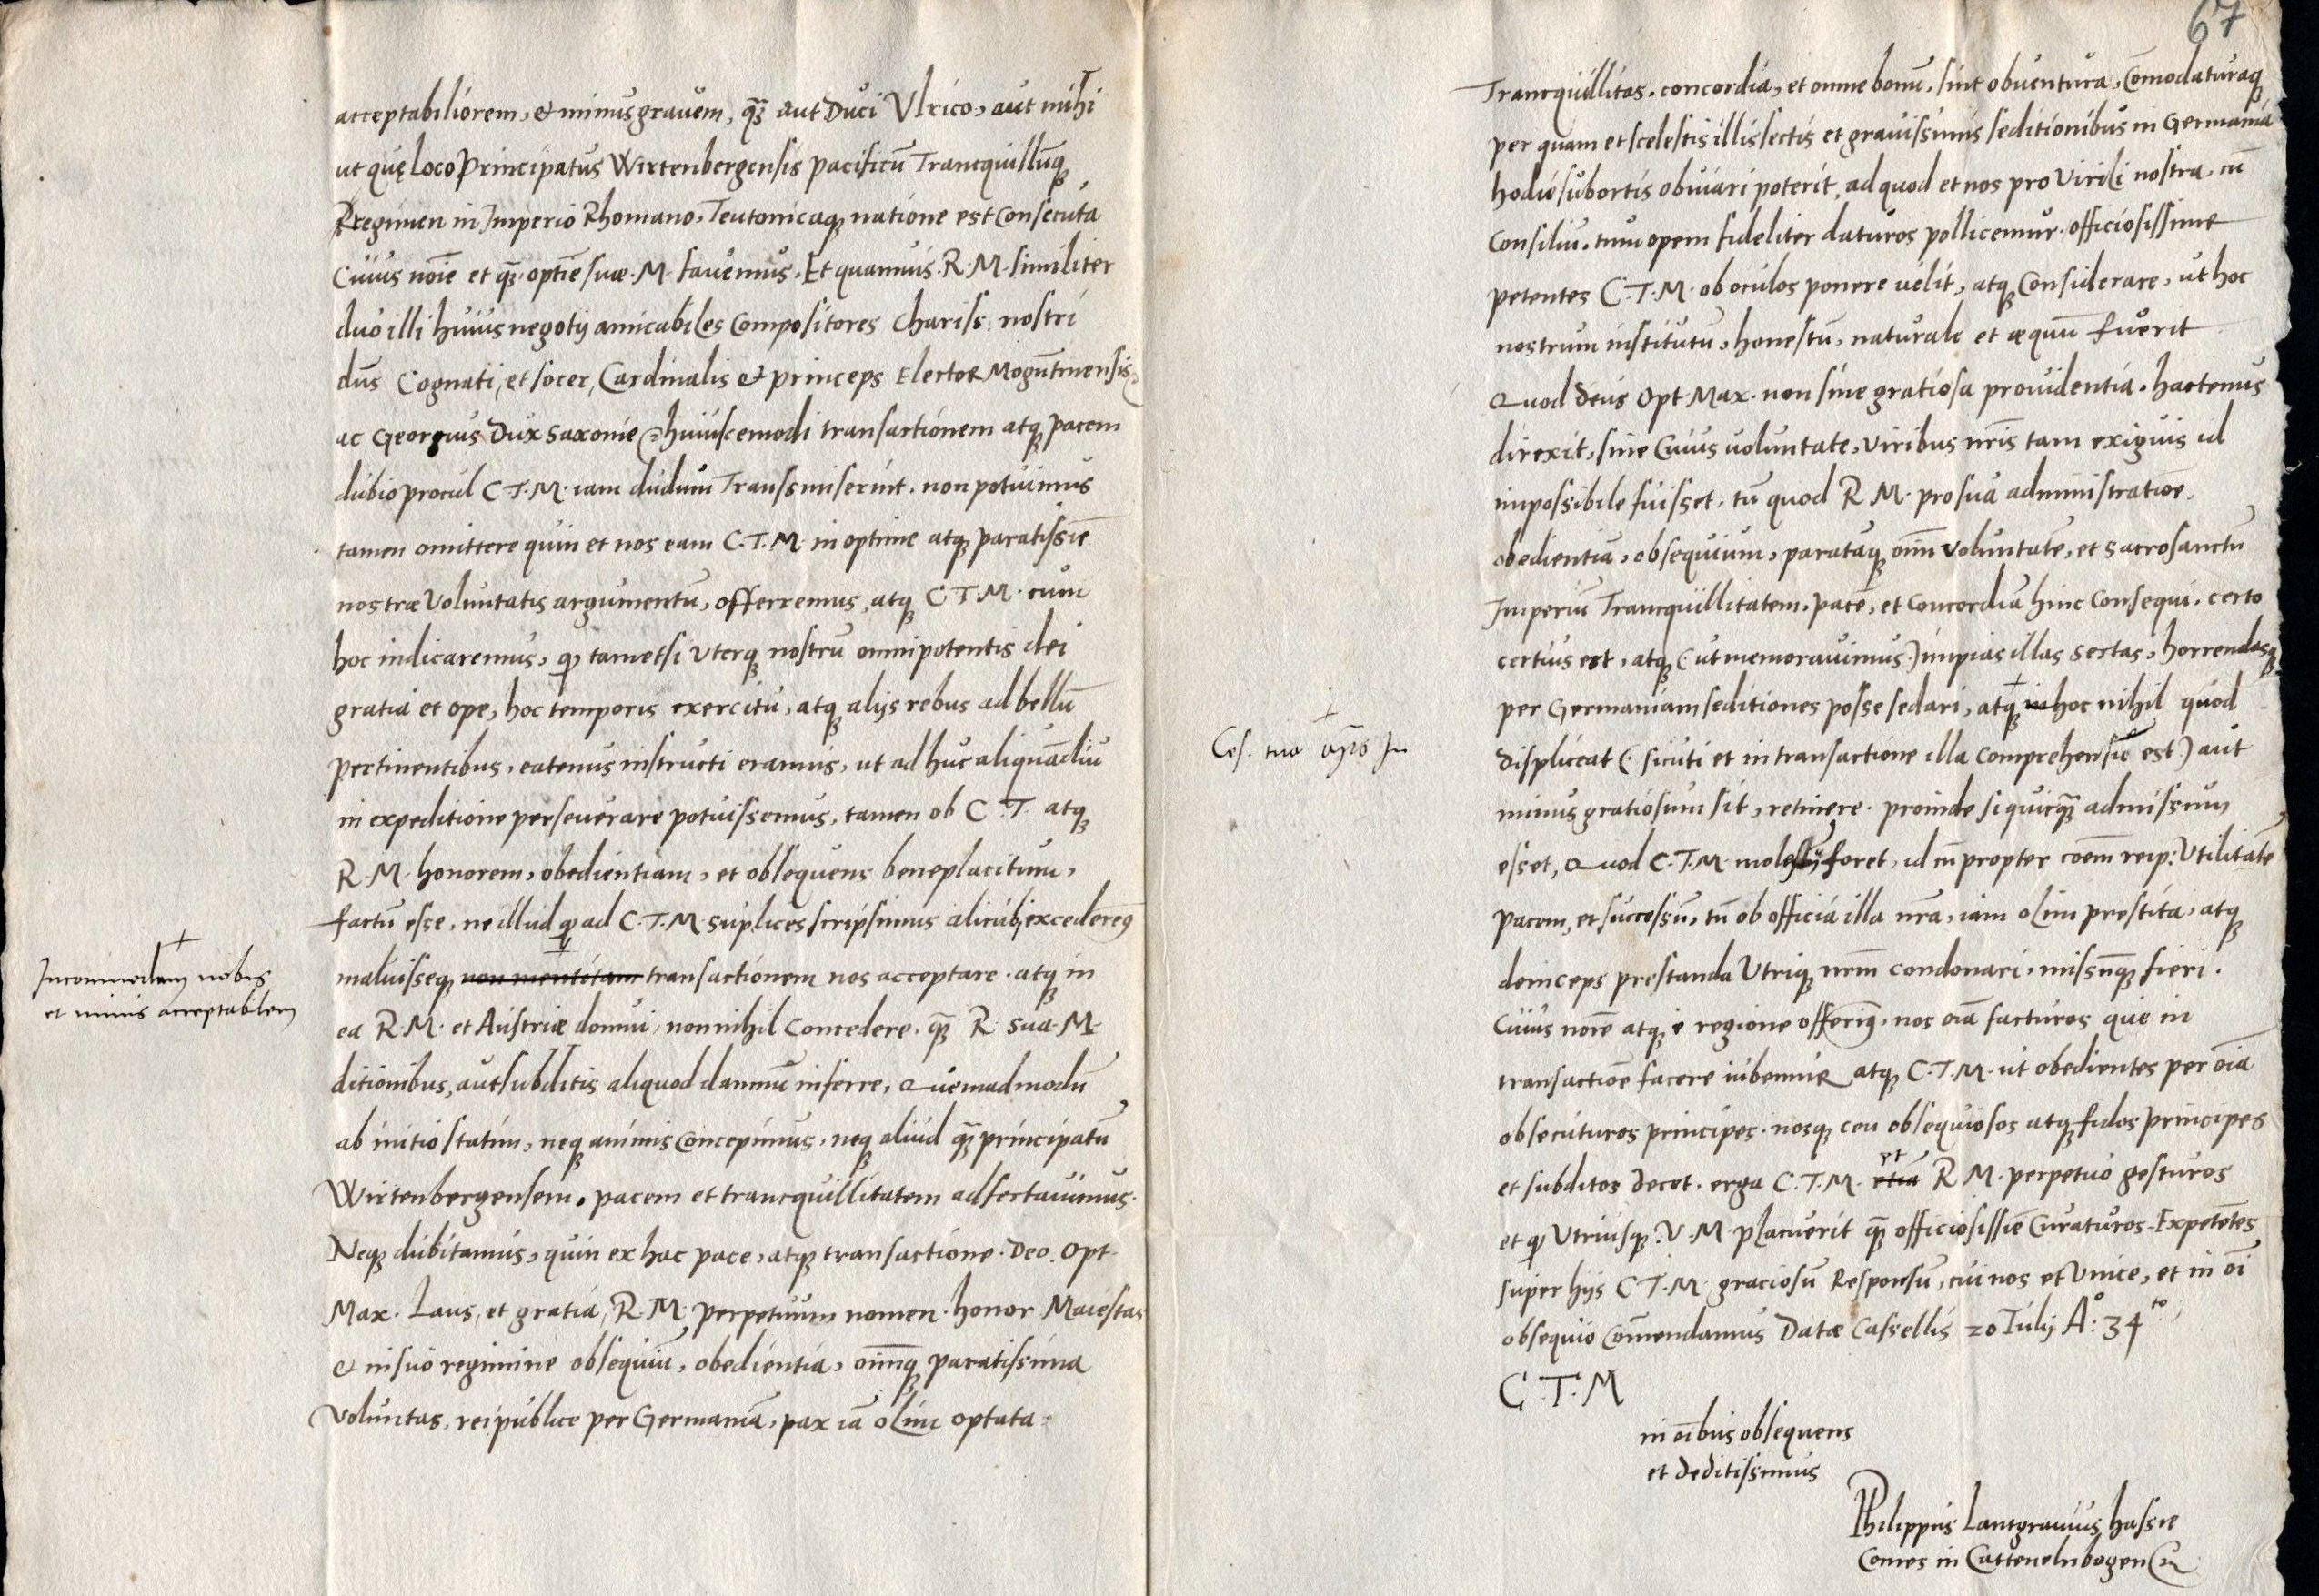 acceptabiliorem, & minus grauem, quā aut Duci Vlrico, aut mihi
ut quę Loco Principatus Wirtenbergensis pacificū Trancquillūq
Rregimen in Imperio Rhomano, Teutonicaq natione est Consecuta
Cuius noīe et quā optīe suæ. M. fauemus. Et quamuis. R. M. similiter
duo illi huius negotij amicabiles Compositores Chariss: nostri
dn̄s Cognati, et socer, Cardinalis & princeps Elector Mogūtinensis
ac Georgius Dux Saxonie huiuscemodi transactionem atq pacem
dubio procul C. T. M. iam dudum Transmiserint. non potuimus
tamen omittere quin et nos eam C. T. M. in optime atq paratissīe
nostræ Voluntatis argumentū, offerremus, atq C T. M. cum
hoc indicaremus, qd tametsi Uterq nostrū omnipotentis dei
gratia et ope, hoc temporis exercitu, atq alijs rebus ad bellū
pertinentibus, eatenus instructi eramus, ut ad huc aliquādiu
in expeditione perseuerare potuissemus, tamen ob C. T. atq
R. M. honorem, obedientiam, et obsequens beneplacitum,
factū esse, ne illud qd ad C. T. M. suplices scripsimus alicubi excederem9
maluisseq non mentitam transactionem nos acceptare. atq in
ea R. M. et Austriæ domui, nonnihil Concedere. quā R. sua. M.
ditionibus, aut subditis aliquod damnū inferre, Quemadmodū
ab initio statim, neq animis Concepimus, neq aliud quā principatū
Wirtenbergensem. pacem et trancquillitatem adfectauimus.
Neq dubitamus, quin ex hac pace, atq transactione. Deo. Opt.
Max. Laus, et gratia, R. M. perpetuum nomen. honor Maiestas
& in suo regimine obsequiū, obedientia, omniq paratissima
Voluntas, reipublice per Germaniā, pax iā olim optata
Incommodam nobis
et minus acceptabilem
67
Trancquillitas. concordia, et omne bonū, sint obuentura, Cōmodaturaq
per quam et scelestis illis sectis et grauissimis seditionibus in Germania
hodie subortis obuiari poterit, ad quod et nos pro Virili nostra, cū
Consiliū. tum opem fideliter daturos pollicemur. officiosissime
petentes C. T. M. ob oculos ponere uelit, atq Considerare, ut hoc
nostrum institutū, honestū, naturale et æquū fuerit
Quod Deus Opt Max. non sine gratiosa prouidentia. hactenus
direxit, sine Cuius uoluntate, Viribus nr̄is tam exiguis id
impossibile fuisset, tū quod R M. pro sua administratiōe,
obedientiā, obsequium, paratāq oīm Voluntatē, et Sacrosanctū
Imperiū Trancquillitatem. pacē, et Concordiā hinc Consequi. certo
certius est, atq (ut memorauimus) impias illas sectas, horrendasq
per Germaniam seditiones posse sedari, atq in hoc nihil quod
Ces. tua
displiceat (sicuti et in transactione illa Comprehensū est) aut
minus gratiosum sit, retinere. proinde si quicquā admissum
esset, Quod C. T. M. foret, id propter coēm reip: Utilitatē
pacem, et successū, tū ob officia illa nr̄a, iam olim prestita, atq
deinceps prestanda Utriq nr̄m condonari, missūq fieri.
Cuius noīe atq è regione offerim9, nos oīa facturos que in
transactiōe facere iubemur atq C. T. M. ut obedientes per oīa
obsecuturos principes. nosq ceu obsequiosos atq fidos principes
et subditos decet. erga C. T. M. etiā et R M. perpetuo gesturos
et qd Utriusq. V. M placuerit quā officiosissīe Curaturos. Expetētes
super hijs C T. M. graciosū Responsū, cui nos et Unice, et in oī
obsequio Cōmendamus Datæ Cassellis 20 Iulij A°: 34to
C. T. M
in oībus obsequens
et deditissimus
Philippus Lantgrauius hassie
Comes in Cattenelnbogen